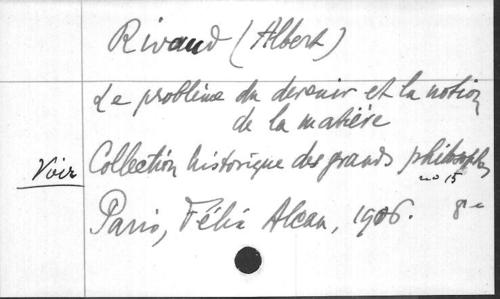 Rivaud (Albert)
Le problème du devenir et la notion
de la matière
Voir Collection historique des grands philosophes
no 15
Paris, Félix Alcan, 1906. 8°